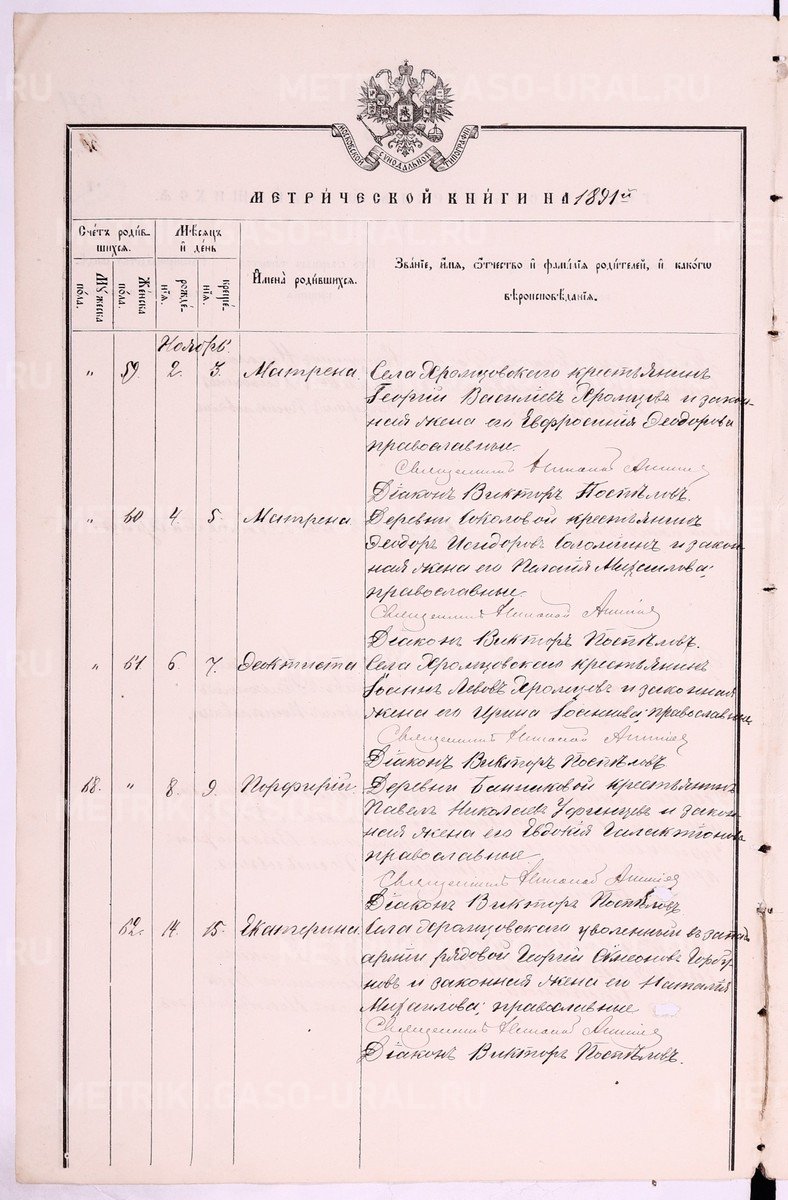 METRIKI.GASO-URAL.RU
МОСКОВСКОЙ СѴНОДАЛЬНОЙ ТИПОГРАФІИ
МЕТРИЧЕСКОЙ КНИГИ НА 1891й
Счетъ родив-
шихся.
Мѣсяцъ
и день
Имена родившихся.
Званіе, имя, отчество и фамилія родителей, и какого
вѣроисповѣданія.
Мужеска
пола.
Женска
пола.
рожде-
нія.
креще-
нія.
Ноябрь.
„ 59 2. 3. Матрена. Села Хромцовскаго крестьянинъ
Георгій Васильевъ Хромцовъ и закон-
ная жена его Евфросинія Ѳеодорова
православные.
Священникъ
Діаконъ Викторъ Поспѣловъ.
„ 60 4. 5. Матрена. Деревни Соколовой крестьянинъ
Ѳеодоръ Исидоровъ и закон-
ная жена его Пелагія Михаилова;
православные.
Священникъ
Діаконъ Викторъ Поспѣловъ.
„ 61 6. 7. Ѳеоктиста Села Хромцовскаго крестьянинъ
Іоаннъ Левовъ Хромцовъ и законная
жена его Ирина Іоаннова; православные
Священникъ
Діаконъ Викторъ Поспѣловъ.
68. „ 8. 9. Порфирій. Деревни Банниковой крестьянинъ
Павелъ Николаевъ и закон-
ная жена его Евдокія Галактіонова
православные
Священникъ
Діаконъ Викторъ Поспѣловъ
62. 14. 15. Екатерина. Села Хромцовскаго уволенный въ запасъ
арміи рядовой Георгій Симеоновъ Горбу-
новъ и законная жена его Наталія
Михаилова; православные
Священникъ
Діаконъ Викторъ Поспѣловъ.